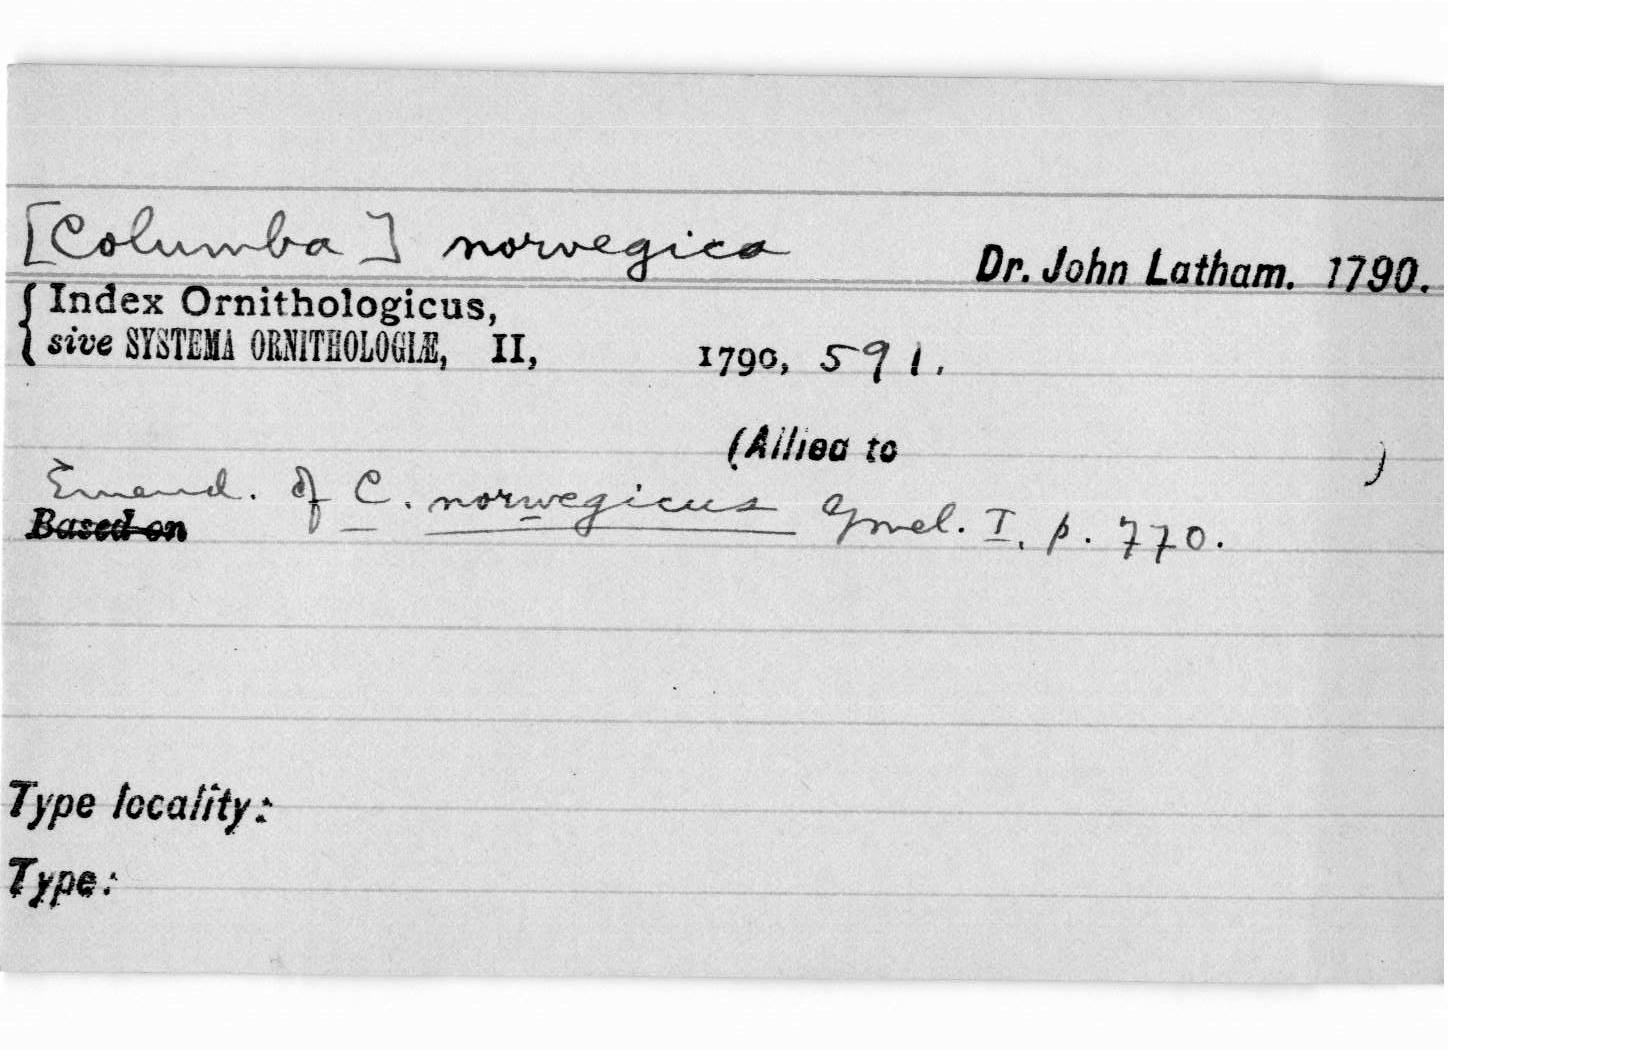 [Columba] norvegica
Dr. John Latham. 1790.
Index Ornithologicus,
sive SYSTEMA ORNITHOLOGIÆ, II, 1790, 591.
(Allied to )
Emend. of C. norwegicus Gmel. I, p. 770.
Based on
Type locality:
Type: